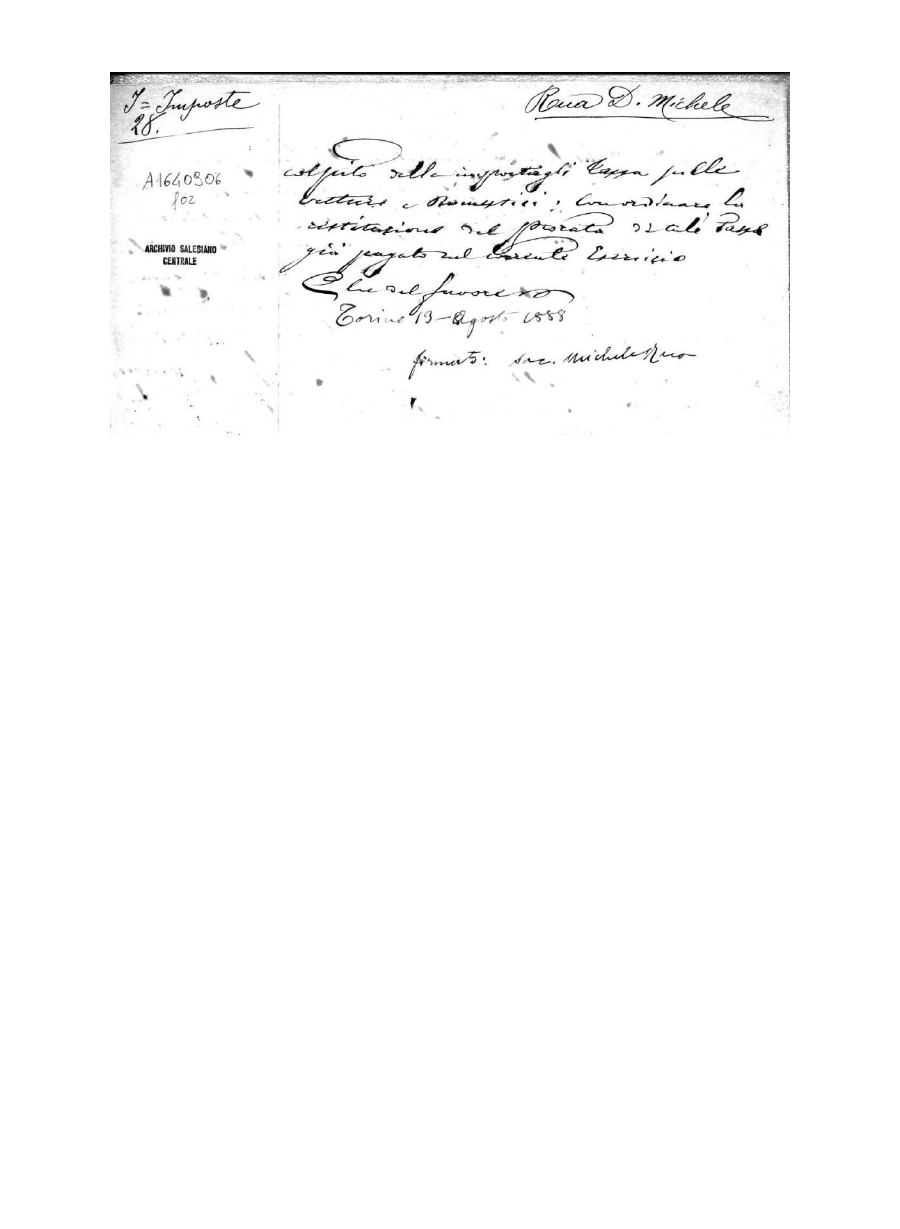 I = Imposte
28.
Rua D. Michele
A1640906
f02
ARCHIVIO SALESIANO
CENTRALE
colpito della impostagli tassa sulle
vetture e Domestici; con ordinare la
restituzione del prorata di tale Tassa
già pagato nel corrente Esercizio
Che del favore
Torino 13 - Agosto 1888
firmato: sac. Michele Rua